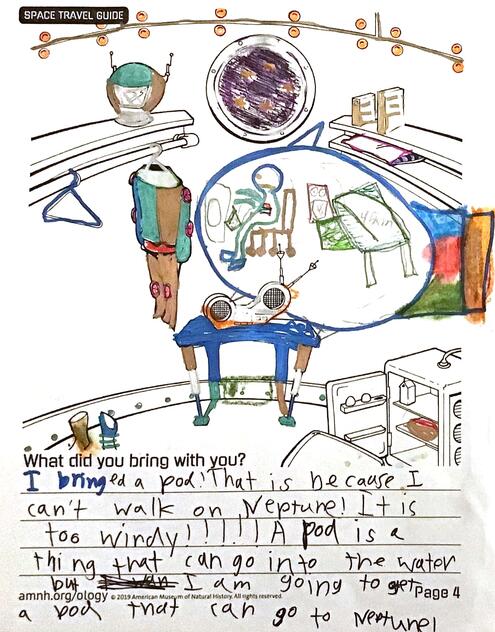 SPACE TRAVEL GUIDE
What did you bring with you?
I bringed a pod! That is because I
can't walk on Neptune! It is
too windy!!!!!! A pod is a
thing that can go into the water
but I am going to get
Page 4
amnh.org/ology © 2019 American Museum of Natural History. All rights reserved.
a pod that can go to Neptune!